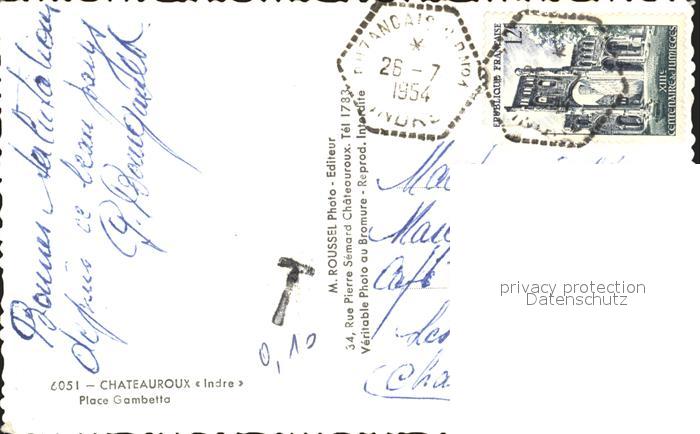 Bonnes salutations
depuis ce beau pays
6051 — CHATEAUROUX « Indre »
Place Gambetta
M. ROUSSEL Photo - Editeur
34, Rue Pierre Sémard Châteauroux. Tél 1783
Véritable Photo au Bromure - Reprod. Interdite
0,10
26 - 7
1954
INDRE
12F
REPUBLIQUE FRANÇAISE
XIIIE CENTENAIRE de JUMIEGES
Café
privacy protection
Datenschutz